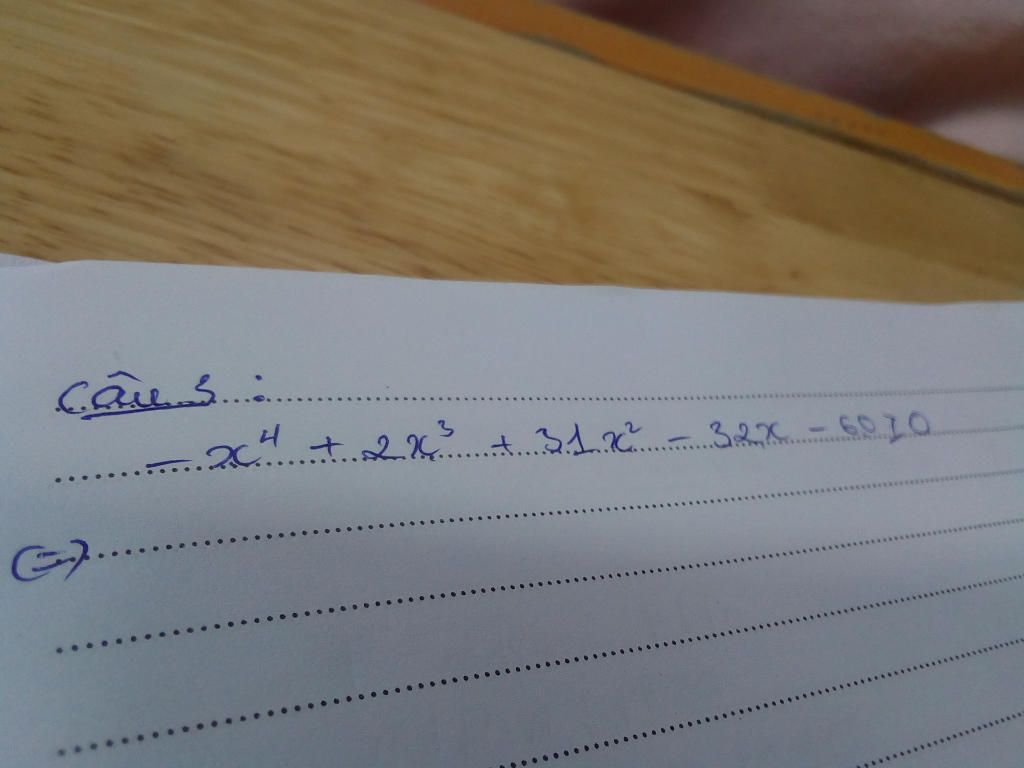 Câu 3 :
- x⁴ + 2x³ + 31x² - 32x - 60
(=)